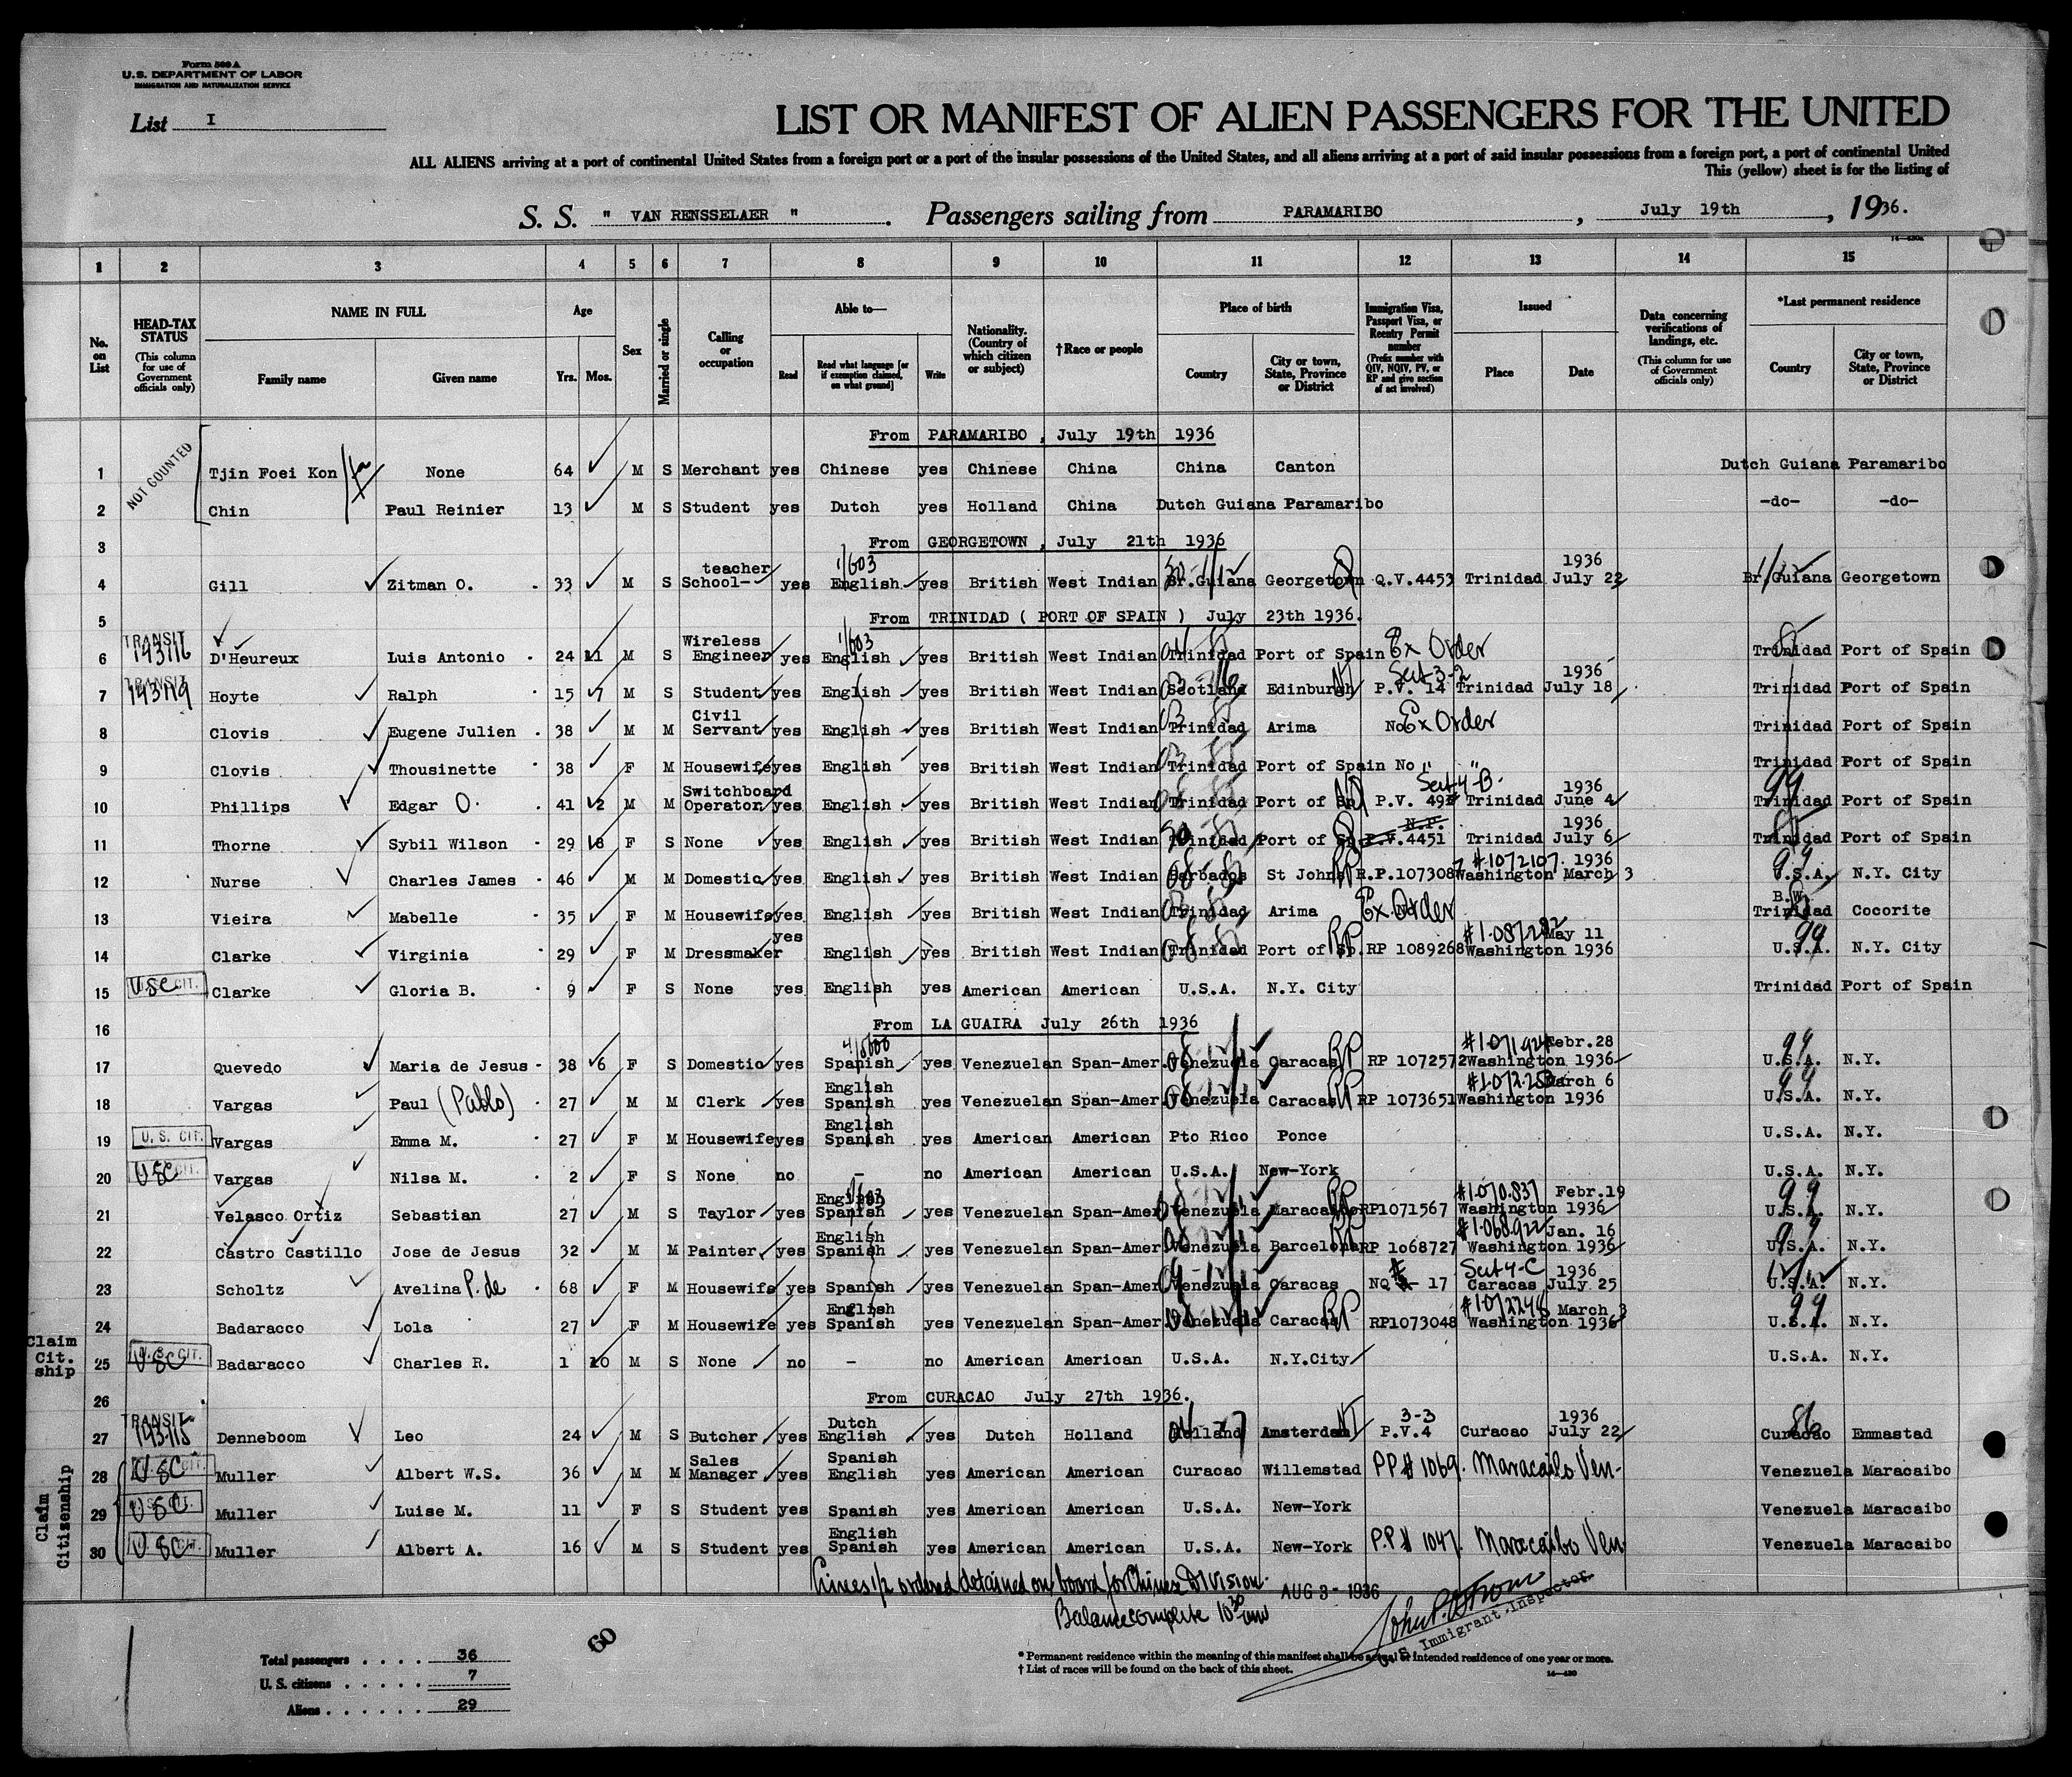 Form 500 A
U.S. DEPARTMENT OF LABOR
IMMIGRATION AND NATURALIZATION SERVICE
List I
LIST OR MANIFEST OF ALIEN PASSENGERS FOR THE UNITED
ALL ALIENS arriving at a port of continental United States from a foreign port or a port of the insular possessions of the United States, and all aliens arriving at a port of said insular possessions from a foreign port, a port of continental United
This (yellow) sheet is for the listing of
S. S. " VAN RENSSELAER ". Passengers sailing from PARAMARIBO, July 19th, 1936.
1 2 3 4 5 6 7 8 9 10 11 12 13 14 15
No. on List
HEAD-TAX STATUS (This column for use of Government officials only)
NAME IN FULL Family name Given name
Age Yrs. Mos.
Sex
Married or single
Calling or occupation
Able to— Read Read what language [or if exemption claimed, on what ground] Write
Nationality. (Country of which citizen or subject)
†Race or people
Place of birth Country City or town, State, Province or District
Immigration Visa, Passport Visa, or Reentry Permit number (Prefix number with QIV, NQIV, PV, or RP and give section of act involved)
Issued Place Date
Data concerning verifications of landings, etc. (This column for use of Government officials only)
*Last permanent residence Country City or town, State, Province or District
From PARAMARIBO, July 19th 1936
NOT COUNTED
1 Tjin Foei Kon None 64 M S Merchant yes Chinese yes Chinese China China Canton Dutch Guiana Paramaribo
2 Chin Paul Reinier 13 M S Student yes Dutch yes Holland China Dutch Guiana Paramaribo -do- -do-
3 From GEORGETOWN, July 21th 1936
4 Gill Zitman O. 33 M S School-teacher yes English yes British West Indian Br.Guiana Georgetown Q.V.4453 Trinidad July 22 1936 Br.Guiana Georgetown
5 From TRINIDAD ( PORT OF SPAIN ) July 23th 1936.
6 TRANSIT 143116 D'Heureux Luis Antonio 24 11 M S Wireless Engineer yes English yes British West Indian Trinidad Port of Spain Ex Order Trinidad Port of Spain
7 TRANSIT 143119 Hoyte Ralph 15 7 M S Student yes English yes British West Indian Scotland Edinburgh Sect 3-2 P.V. 14 Trinidad July 18 1936 Trinidad Port of Spain
8 Clovis Eugene Julien 38 M M Civil Servant yes English yes British West Indian Trinidad Arima No Ex Order Trinidad Port of Spain
9 Clovis Thousinette 38 F M Housewife yes English yes British West Indian Trinidad Port of Spain No " " Trinidad Port of Spain
10 Phillips Edgar O. 41 2 M M Switchboard Operator yes English yes British West Indian Trinidad Port of Sp. Sect 4-B. P.V. 495 Trinidad June 4 1936 Trinidad Port of Spain
11 Thorne Sybil Wilson 29 8 F S None yes English yes British West Indian Trinidad Port of Sp. N.P. P.V.4451 Trinidad July 6 1936 Trinidad Port of Spain
12 Nurse Charles James 46 M M Domestic yes English yes British West Indian Barbados St Johns R.P.1073087 #1072107. Washington March 3 1936 U.S.A. N.Y. City
13 Vieira Mabelle 35 F M Housewife yes English yes British West Indian Trinidad Arima Ex Order B.W. Trinidad Cocorite
14 Clarke Virginia 29 F M Dressmaker yes English yes British West Indian Trinidad Port of Sp. RP 1089268 Washington May 11 1936 U.S.A. N.Y. City
15 U.S. CIT. USC Clarke Gloria B. 9 F S None yes English yes American American U.S.A. N.Y. City Trinidad Port of Spain
16 From LA GUAIRA July 26th 1936
17 Quevedo Maria de Jesus 38 6 F S Domestic yes Spanish yes Venezuelan Span-Amer. Venezuela Caracas RP 1072572 #1071924 Washington Febr.28 1936 U.S.A. N.Y.
18 Vargas Paul (Pablo) 27 M M Clerk yes English Spanish yes Venezuelan Span-Amer. Venezuela Caracas RP 1073651 Washington March 6 1936 U.S.A. N.Y.
19 U. S. CIT. Vargas Emma M. 27 F M Housewife yes English Spanish yes American American Pto Rico Ponce U.S.A. N.Y.
20 USC Vargas Nilsa M. 2 F S None no - no American American U.S.A. New-York U.S.A. N.Y.
21 Velasco Ortiz Sebastian 27 M S Taylor yes English Spanish yes Venezuelan Span-Amer Venezuela Maracaibo RP1071567 #1070837 Washington Febr.19 1936 U.S.A. N.Y.
22 Castro Castillo Jose de Jesus 32 M M Painter yes English Spanish yes Venezuelan Span-Amer Venezuela Barcelona RP 1068727 #1068922 Washington Jan. 16 1936 U.S.A. N.Y.
23 Scholtz Avelina P. de 68 F M Housewife yes Spanish yes Venezuelan Span-Amer Venezuela Caracas NQ - 17 Sect 4-C Caracas July 25 1936 U.S.A. N.Y.
24 Badaracco Lola 27 F M Housewife yes English Spanish yes Venezuelan Span-Amer. Venezuela Caracas RP1073048 #1072248 Washington March 3 1936 U.S.A. N.Y.
Claim Cit. ship
25 U.S. CIT. USC Badaracco Charles R. 1 10 M S None no - no American American U.S.A. N.Y.City U.S.A. N.Y.
26 From CURACAO July 27th 1936.
27 TRANSIT 143115 Denneboom Leo 24 M S Butcher yes Dutch English yes Dutch Holland Holland Amsterdam 3-3 P.V.4 Curacao July 22 1936 Curacao Emmastad
Claim Citizenship
28 USC Muller Albert W.S. 36 M M Sales Manager yes Spanish English yes American American Curacao Willemstad PP# 1069. Maracaibo Ven- Venezuela Maracaibo
29 USC Muller Luise M. 11 F S Student yes Spanish yes American American U.S.A. New-York Venezuela Maracaibo
30 USC Muller Albert A. 16 M S Student yes English Spanish yes American American U.S.A. New-York P.P.# 1047. Maracaibo Ven Venezuela Maracaibo
Lines 1/2 ordered detained on board for Chinese Division.
AUG 3 - 1936
Balance complete 10 30 am
U.S. Immigrant Inspector.
60
Total passengers . . . . 36
U. S. citizens . . . . . 7
Aliens . . . . . . 29
* Permanent residence within the meaning of this manifest shall be actual or intended residence of one year or more.
† List of races will be found on the back of this sheet.